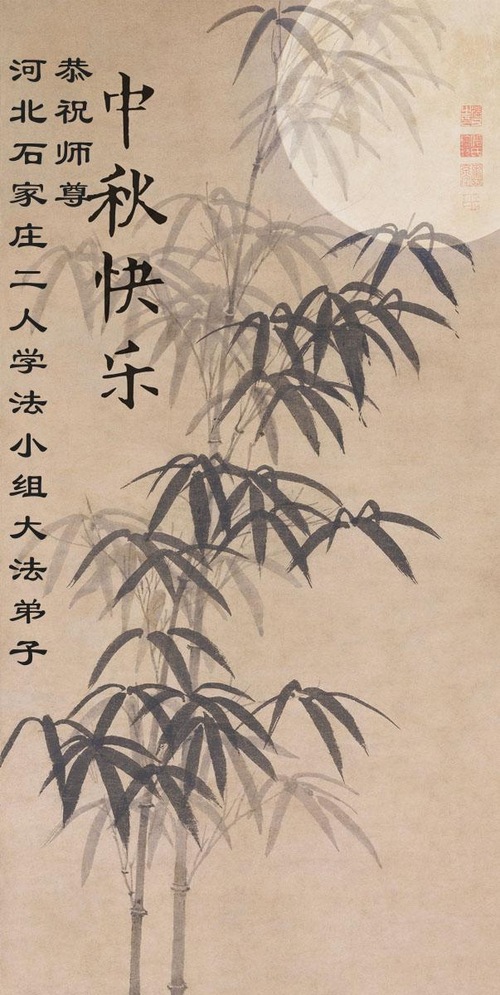 恭祝师尊
中秋快乐
河北石家庄二人学法小组大法弟子